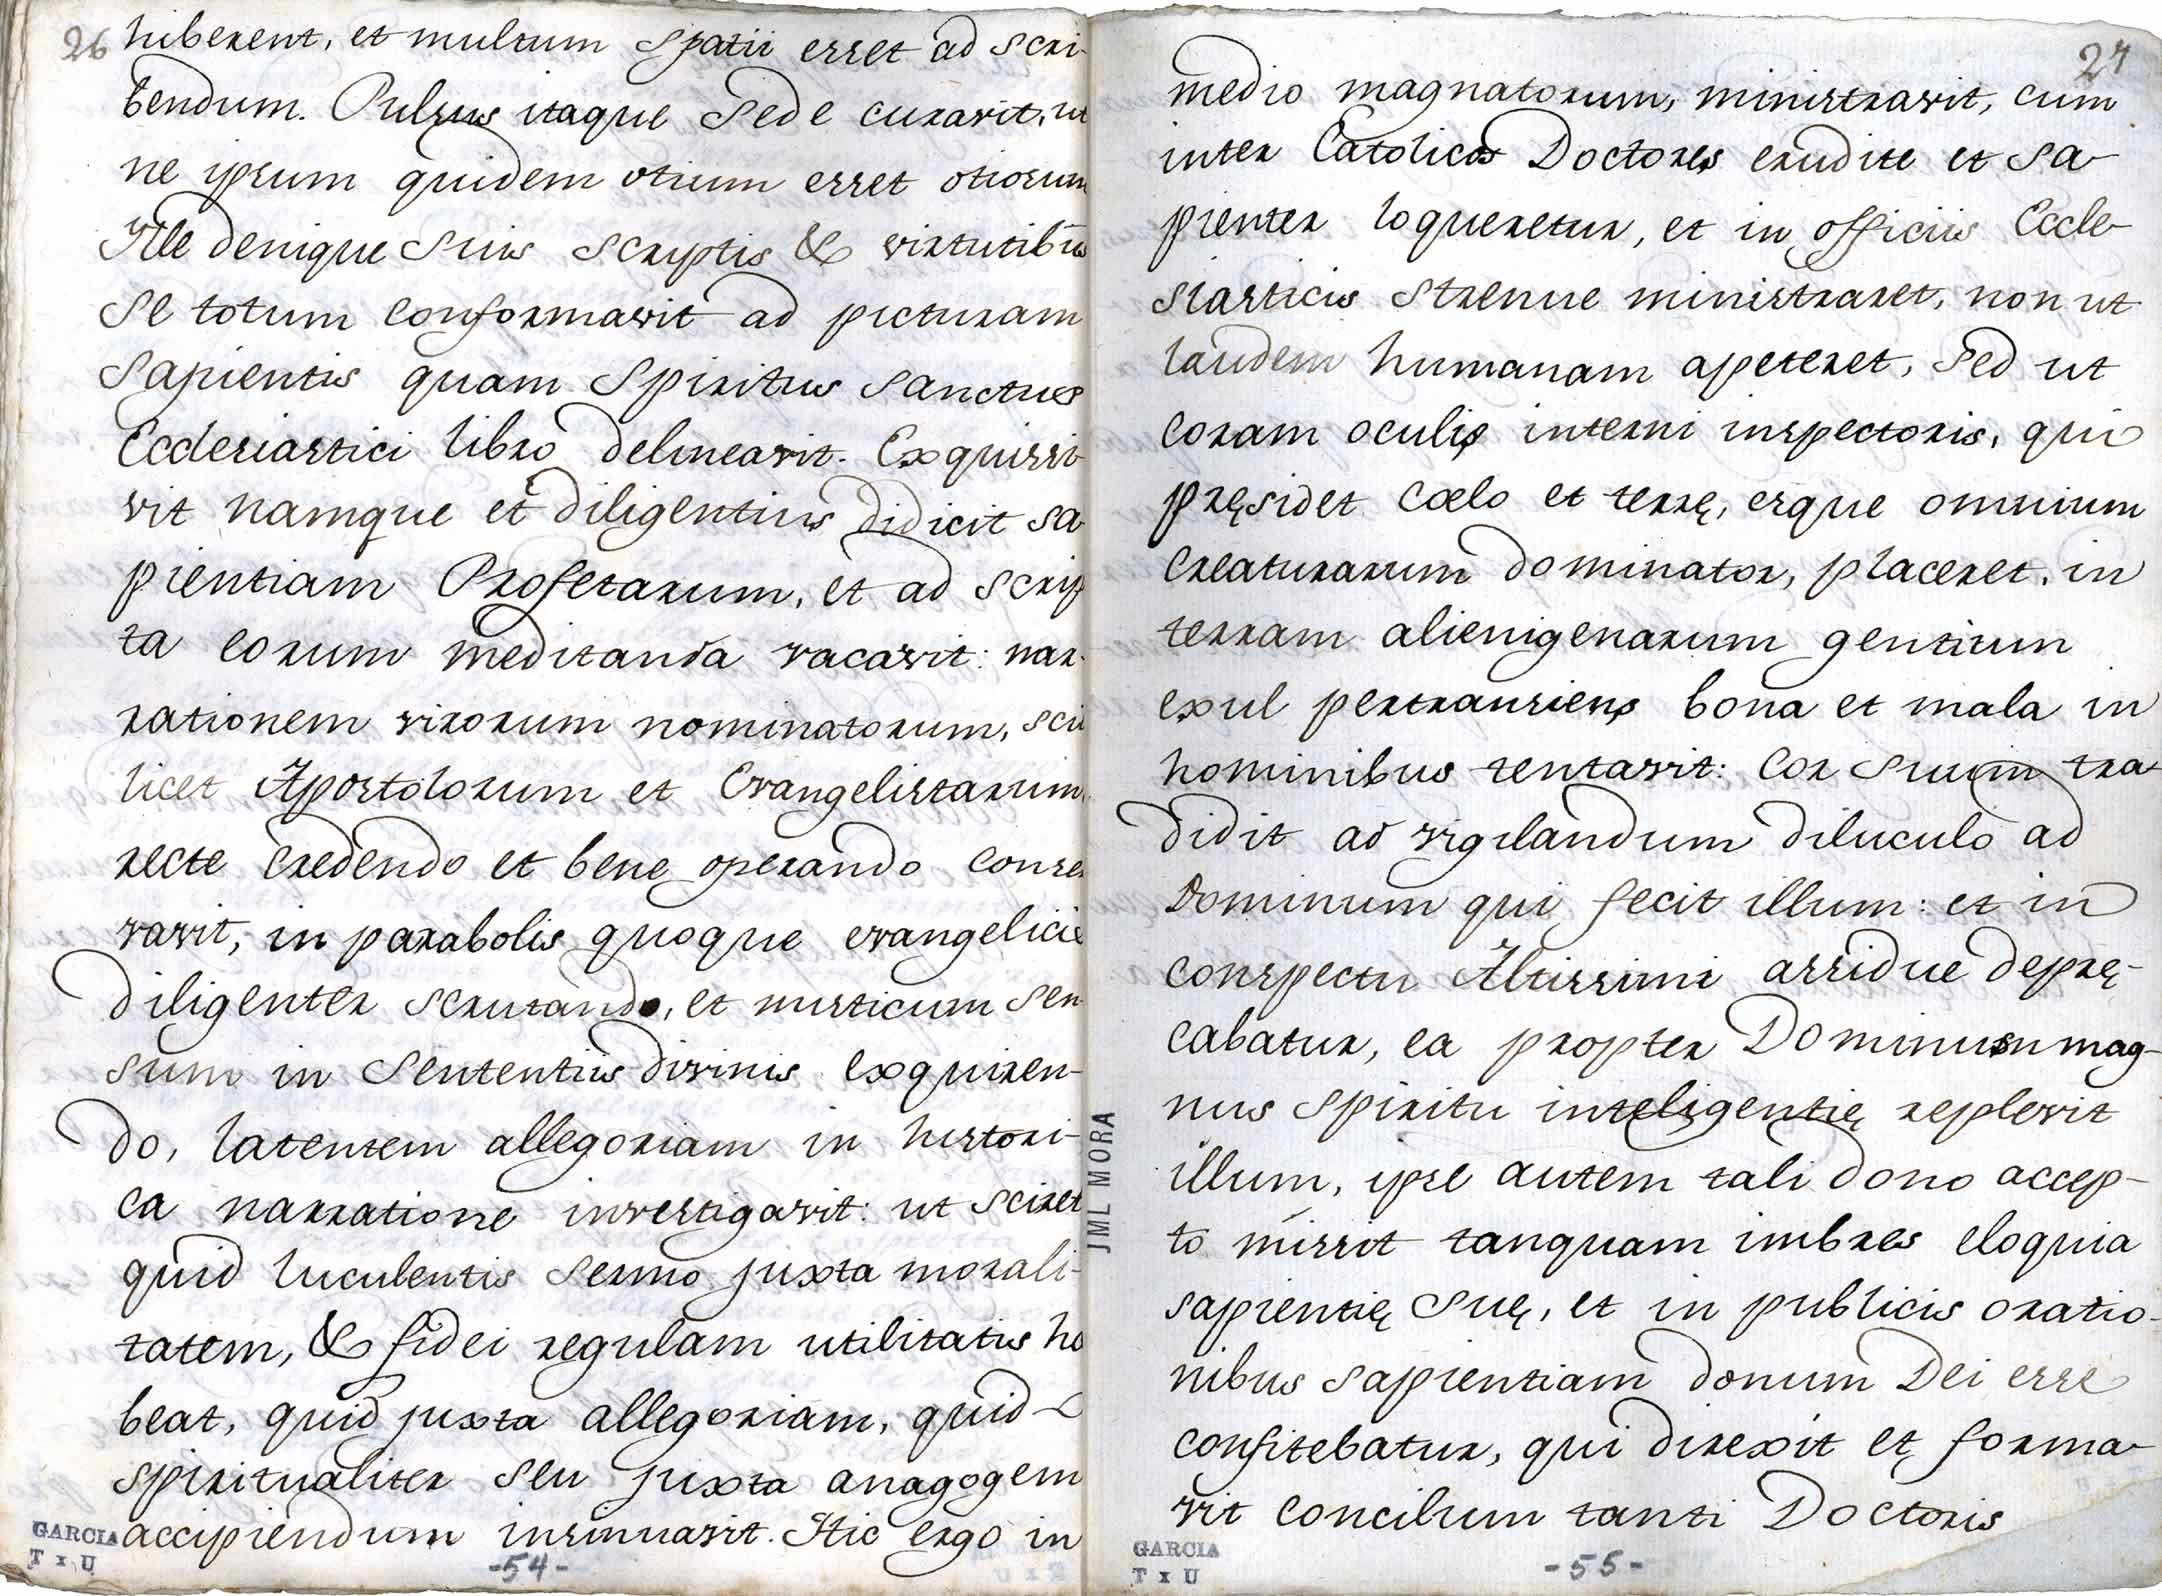 26
hiberent, et multum spatii esset ad scri-
bendum. Pulsus itaque sede curavit, ut
ne ipsum quidem otium esset otiosum
Ille denique suis scriptis & virtutibus
se totum conformavit ad picturam
sapientis quam Spiritus Sanctus
Ecclesiastici libro delineavit. Exquissi-
vit namque et diligentius didicit sa-
pientiam Profetarum, et ad scrip
ta eorum meditanda vacavit: nar-
rationem virorum nominatorum, sci
licet Apostolorum et Evangelistarum,
recte credendo et bene operando conser
vavit, in parabolis quoque evangelicis
diligenter scrutando, et misticum sen-
sum in sententiis divinis exquiren-
do, latentem allegoriam in histori-
ca narratione investigavit: ut sciret
quid luculentis sermo juxta morali-
tatem, & fidei regulam utilitatis ha
beat, quid juxta allegoriam, quid
spiritualiter seu juxta anagogem
accipiendum insinuavit. Hic ergo in
GARCIA
T x U
-54-
JML MORA
27
medio magnatorum, ministravit, cum
inter Catolicos Doctores erudite et sa-
pienter loqueretur, et in officiis Eccle-
siasticis strenue ministraret, non ut
laudem humanam apeteret, sed ut
coram oculis interni inspectoris, qui
pręsidet cœlo et terrę, esque omnium
creaturarum dominator, placeret. in
terram alienigenarum gentium
exul pertransiens bona et mala in
hominibus tentavit: Cor suum tra-
didit ad vigilandum diluculo ad
Dominum qui fecit illum: et in
conspectu Altissimi assidue deprę-
cabatur, ea propter Dominusn mag-
nus spiritu inteligentię replevit
illum, ipse autem tali dono accep-
to missit tanquam imbres eloquia
sapientię suę, et in publicis oratio-
nibus sapientiam donum Dei esse
confitebatur, qui direxit et forma-
vit concilium tanti Doctoris
GARCIA
T x U
-55-